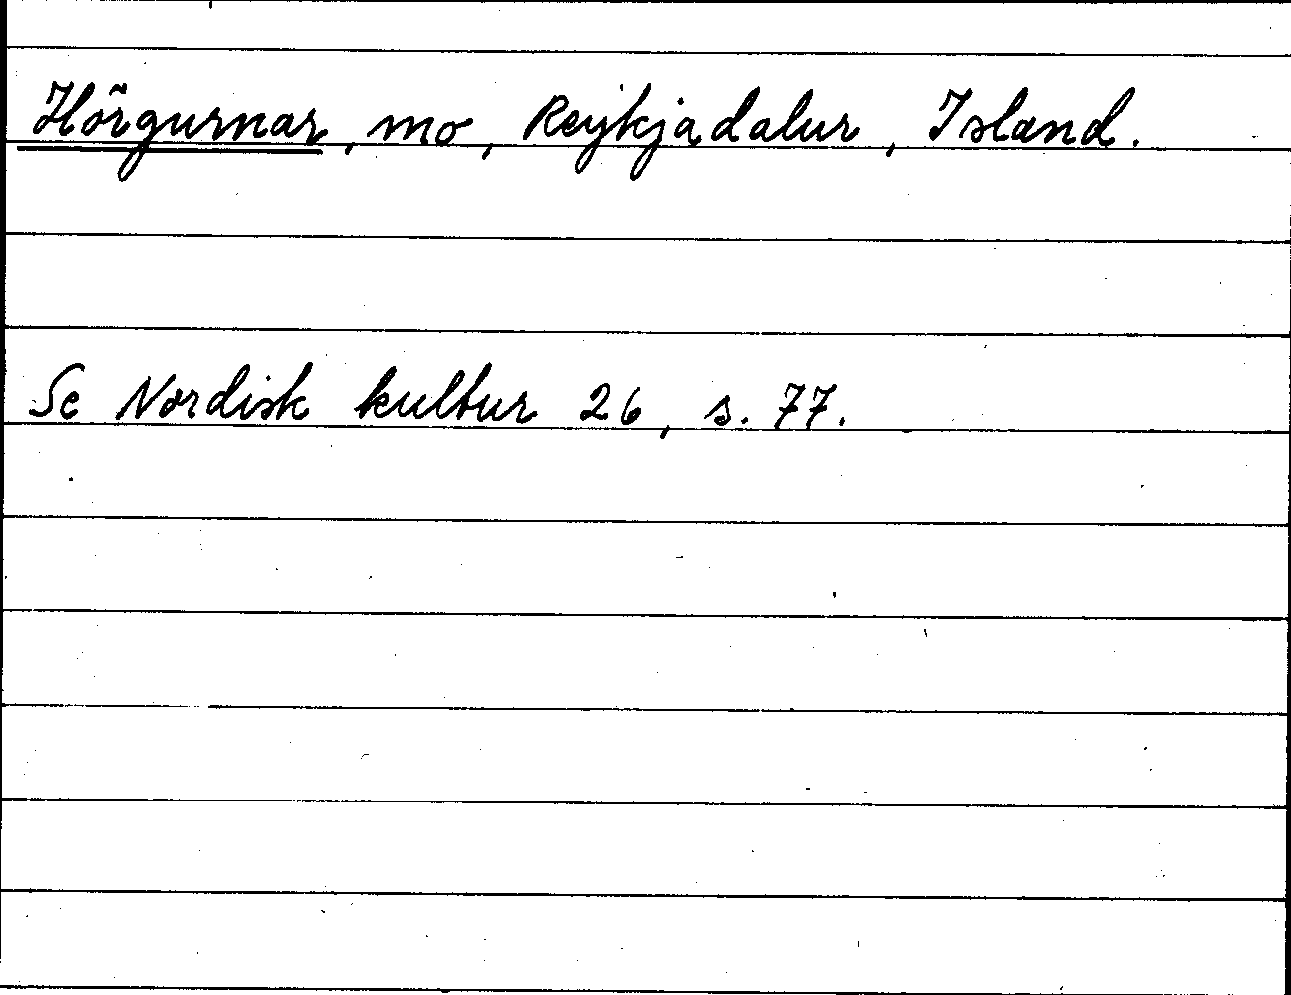 Hörgurnar, mo, Reykjadalur, Island.
Se Nordisk kultur 26, s. 77.